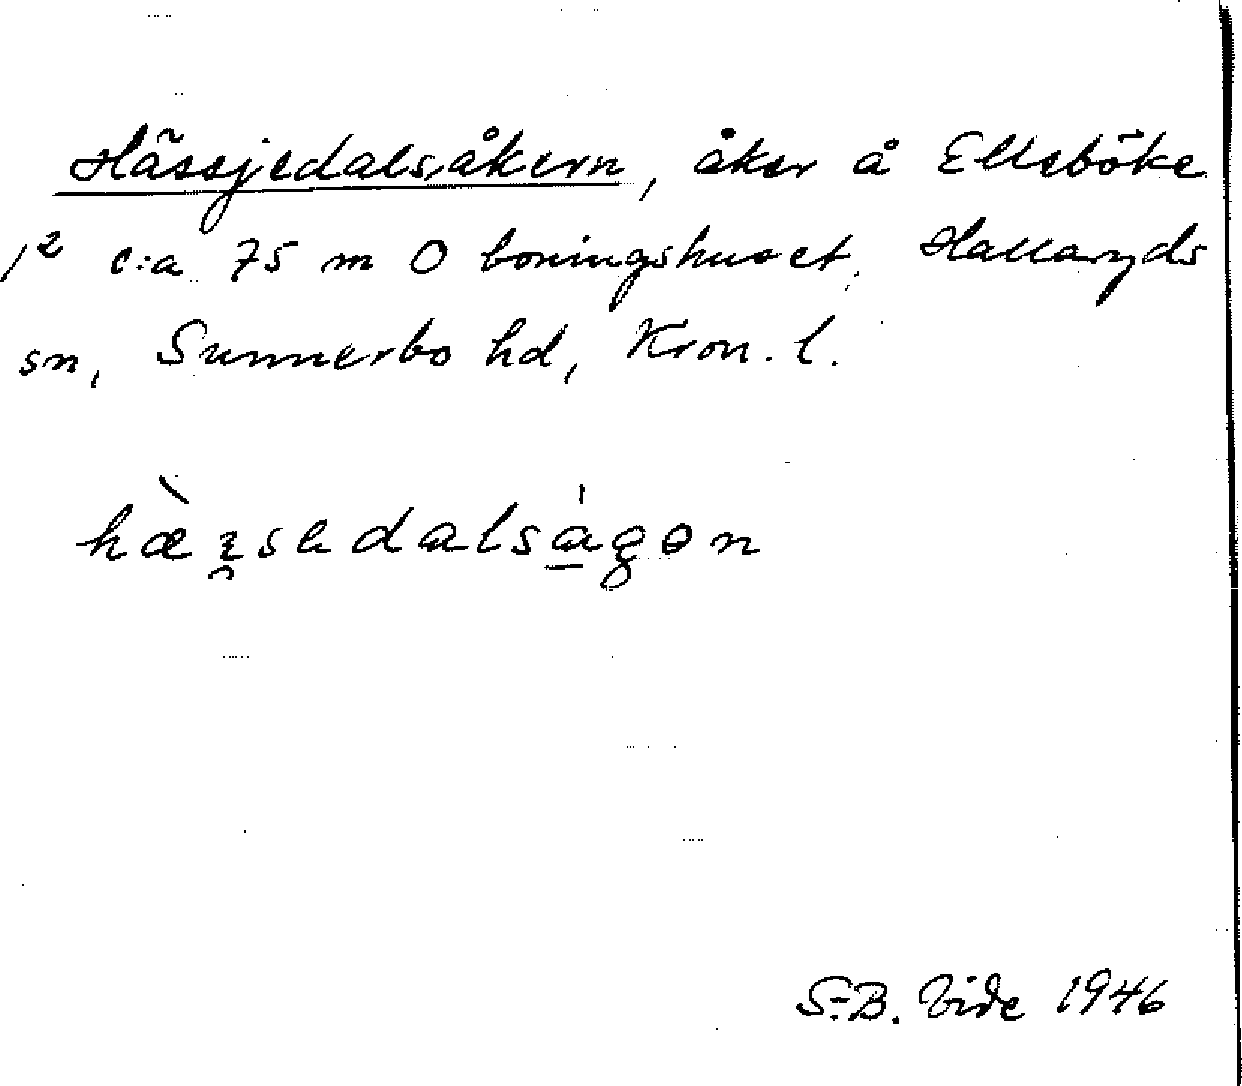 Hässjedalsåkern, åker å Ellseböke
1² c:a 75 m O boningshuset, Hallaryds
sn, Sunnerbo hd, Kron. l.
S-B. Vide 1946